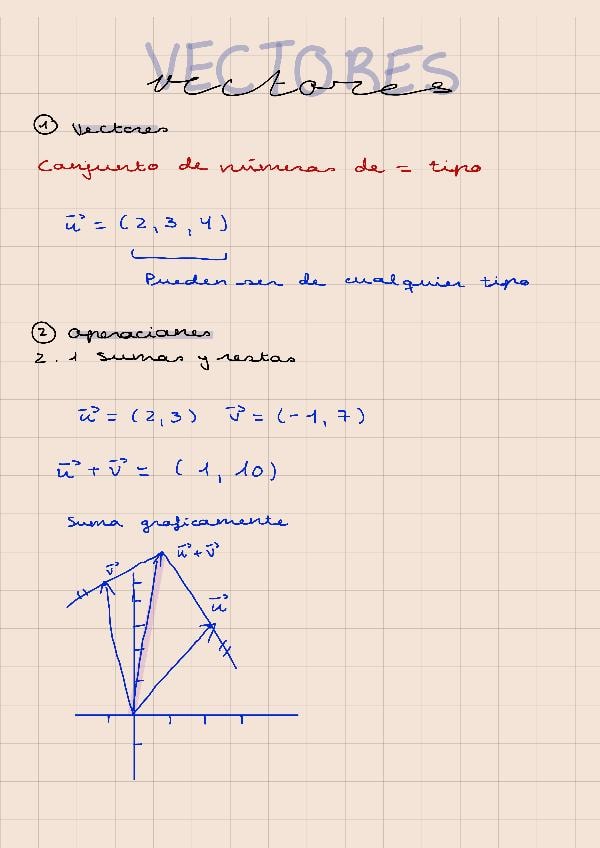 VECTORES
vectores
① Vectores
Conjunto de números de = tipo
u⃗ = (2, 3, 4)
Pueden ser de cualquier tipo
② operaciones
2. 1 sumas y restas
u⃗ = (2, 3) v⃗ = (-1, 7)
u⃗ + v⃗ = (1, 10)
Suma graficamente
u⃗ + v⃗
v⃗
u⃗